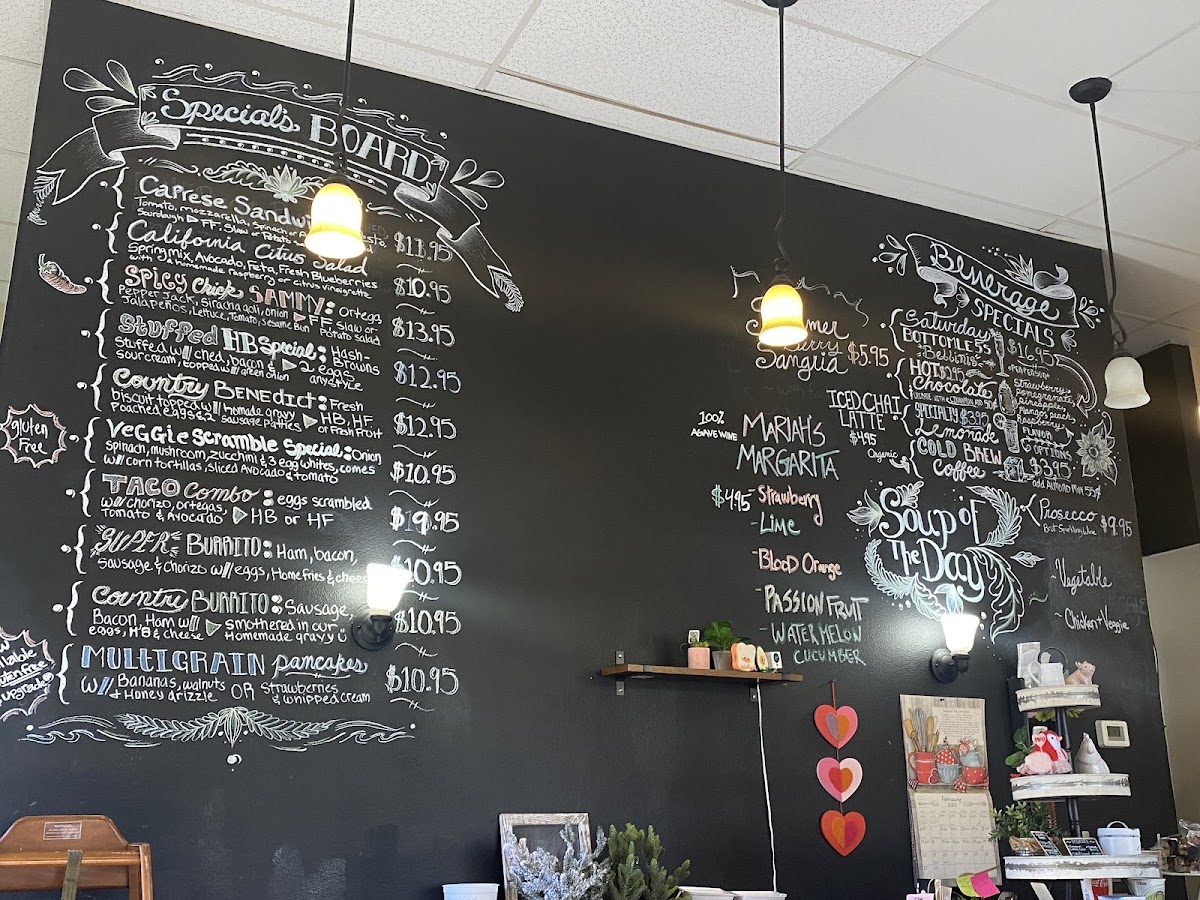 Special's BOARD
Caprese
Tomato, mozzarella, Spinach or
Sourdough ▷ FF, Slaw or Potato
$11.95
California Citrus Salad
Spring mix, Avocado, Feta, Fresh Blueberries
with a homemade raspberry or citrus vinaigrette
$10.95
SPICY Chick SAMMY: Ortega
Pepper Jack, Siracha aoli, onion ▷ FF Slaw or
Jalapeños, Lettuce, Tomato, Sesame Bun Potato Salad
$13.95
Stuffed HB Special: Hash-Browns
Stuffed w// ched, bacon & ▷ 2 eggs
sour cream, topped w// green onion any style
$12.95
Country BENEDict: Fresh
biscuit, topped w// homade gravy ▷ HB, HF
Poached eggs & 2 Sausage patties or Fresh Fruit
$12.95
gluten
Free
VeGGie Scramble Special: Onion
Spinach, mushroom, zucchini & 3 egg whites, comes
w// corn tortillas, sliced Avocado & tomato
$10.95
TACO Combo: eggs scrambled
w// chorizo, ortegas,
Tomato & Avocado ▷ HB or HF
.95
SUPER BURRITO: Ham, bacon,
Sausage & chorizo w// eggs, Home fries & cheese
$10.95
Country BURRITO: Sausage,
Bacon, Ham w// ▷ smothered in our
eggs, HB & cheese Homemade gravy
$10.95
Gluten Free
upgrade
MULTIGRAIN pancakes
w/ Bananas, walnuts OR Strawberries
& Honey drizzle & whipped cream
$10.95
Berry
Sangria $5.95
100%
AGAVE WINE
MARIAH'S
MARGARITA
$4.95 - Strawberry
- Lime
- Blood Orange
- PASSION FRUIT
- WATERMELON
CUCUMBER
ICED CHAI
LATTE
$4.95
Beverage
SPECIALS
Saturday
BOTTOMLESS
Bellinis $16.95
PER PERSON
HOT $2.95
Chocolate
Strawberry
Pomegranate
Pineapple
Mango Peach
Raspberry
FLAVOR
OPTIONS
SPECIALTY $3.95
Lemonade
Organic
COLD BREW
Coffee $3.95
add Almond Milk 55¢
Soup of
The Day
Prosecco
$9.95
- Vegetable
- Chicken + Veggie
February